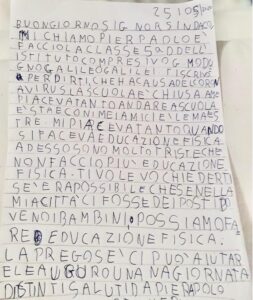 25/05/2020
BUONGIORNO SIGNOR SINDACO
MI CHIAMO PIERPAOLO E
FACCIO LA CLASSE 5a D DELL
ISTITUTO COMPRESIVO G MODU
GNO GALILEO GALILEI TI SCRIVO
PERDIRTI CHE HA CAUSA DEL CORON
AVIRUS LA SCUOLA E CHIUSA A ME
PIACEVA TANTO ANDARE A SCUOLA
E STAE CON I MEI AMICI E LE MAES
TRE. MI PIACEVA TANTO QUANDO
SI FACEVA EDUCAZIONE FISICA.
ADESSO SONO MOLTO TRISTE CHE
NON FACCIO PIÙ EDUCAZIONE
FISICA. TI VOLEVO CHIEDERTI
SE ERA POSSIBILE CHE SE NELLA
MIA CITTÀ CI FOSSE DEI POSTI DO
VE NOI BAMBINI POSSIAMO FA
RE EDUCAZIONE FISICA.
LA PREGO SE CI PUÒ AIUTAR
E LE AUGURO UNA GIORNATA
DISTINTI SALUTI DA PIERPAOLO